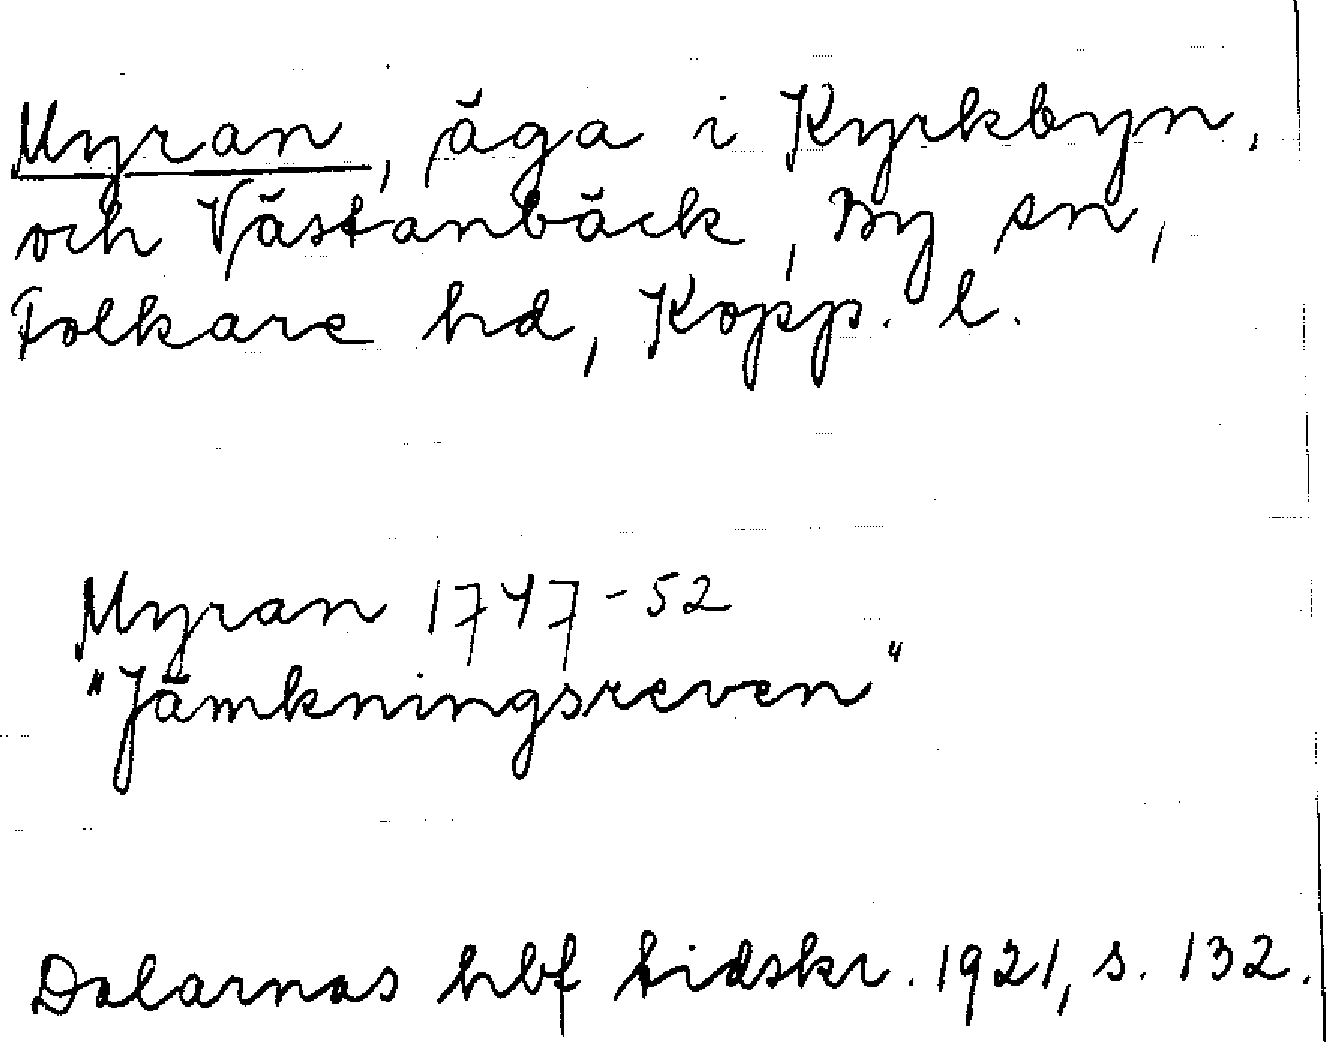 Myran, äga i Kyrkbyn,
och Västanbäck, By sn,
Folkare hd, Kopp. l.
Myran 1747-52
"Jämkningsreven"
Dalarnas hbf tidskr. 1921, s. 132.